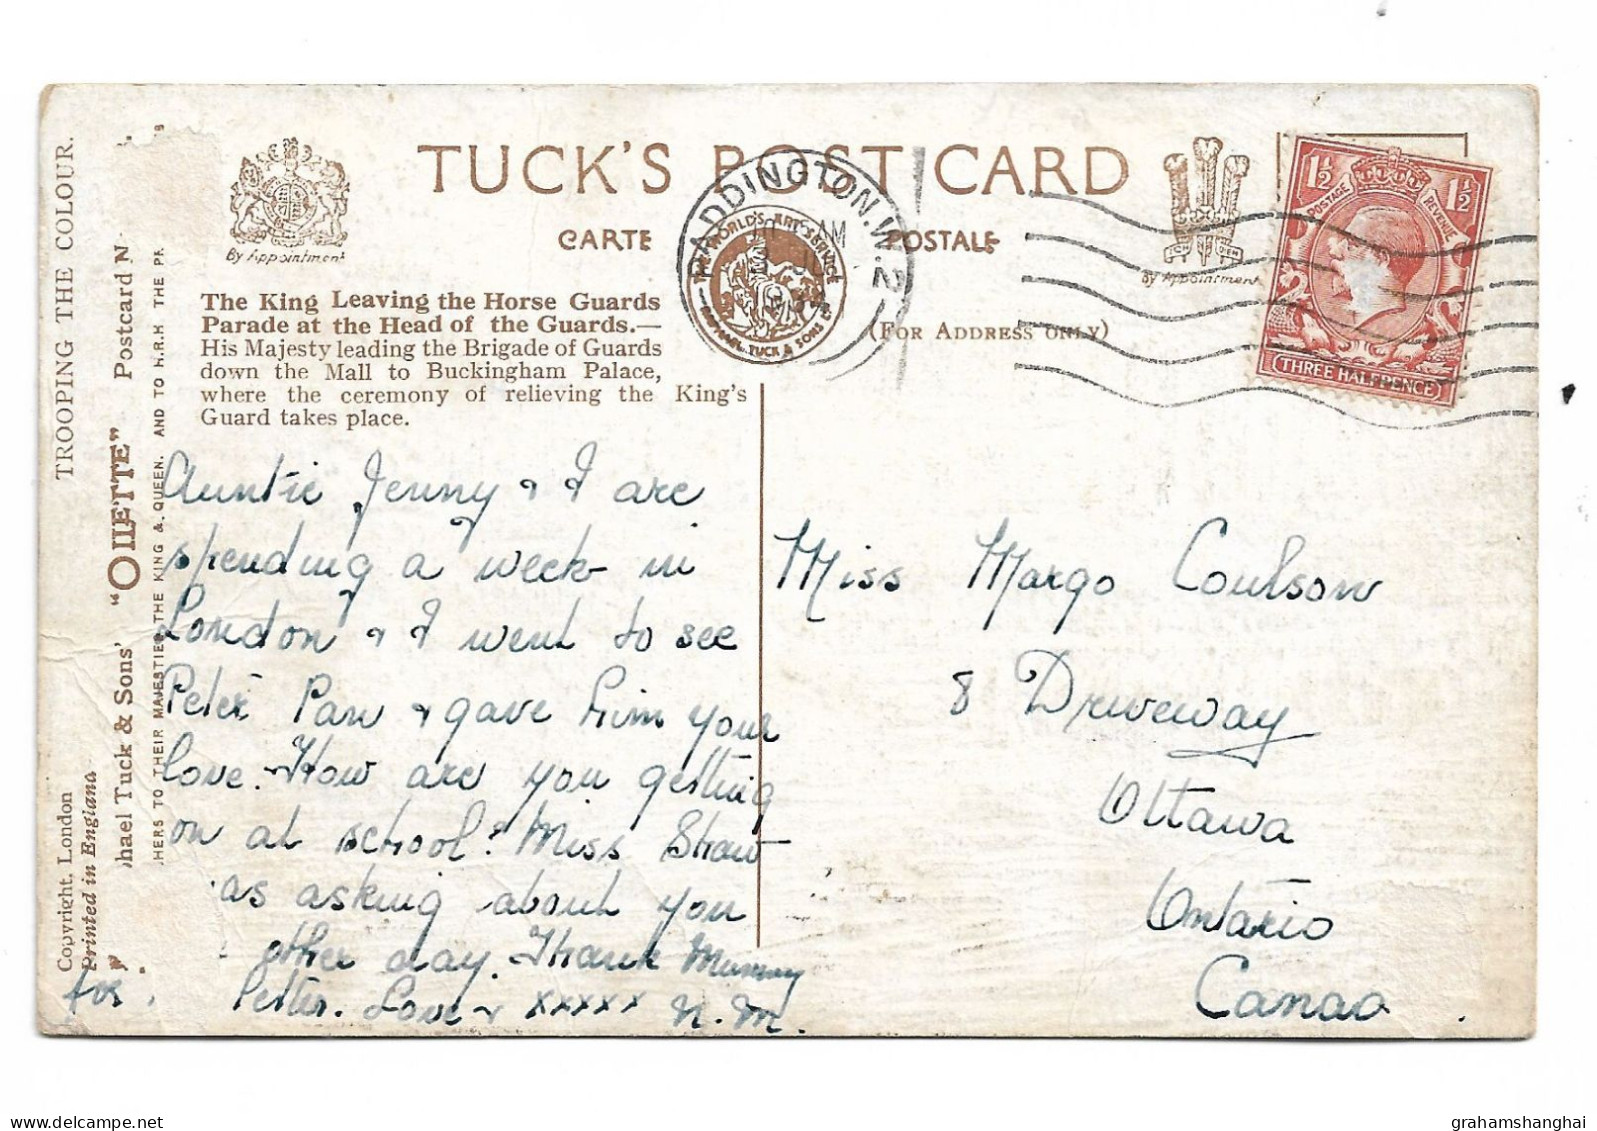 TROOPING THE COLOUR.
Copyright, London
Printed in England
hael Tuck & Sons' "OILETTE" Postcard N
HERS TO THEIR MAJESTIES THE KING & QUEEN, AND TO H.R.H. THE PR
By Appointment
TUCK'S POST CARD
CARTE POSTALE
(FOR ADDRESS ONLY)
By Appointment
The King Leaving the Horse Guards
Parade at the Head of the Guards.—
His Majesty leading the Brigade of Guards
down the Mall to Buckingham Palace,
where the ceremony of relieving the King's
Guard takes place.
PADDINGTON.W.2
AM
THE WORLD'S ART SERVICE
RAPHAEL TUCK & SONS LTD
1½ 1½
POSTAGE REVENUE
THREE HALFPENCE
Auntie Jenny & I are
spending a week in
London & I went to see
Peter Pan & gave him your
love. How are you getting
on at school? Miss Shaw
as asking about you
other day. Thank Mummy
for letter. Love & xxxxx N.M.
Miss Margo Coulson
8 Driveway
Ottawa
Ontario
Canada
grahamshanghai
www.delcampe.net